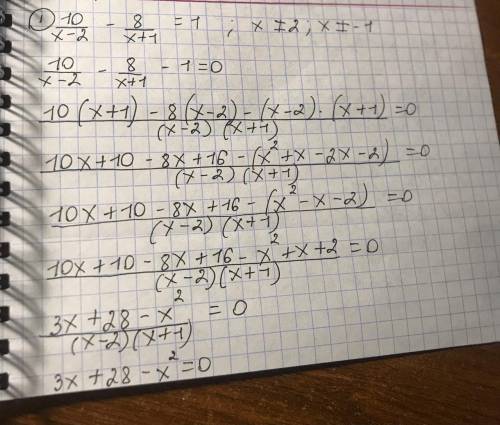 ① 10/(x-2) - 8/(x+1) = 1 ; x ≠ 2 ; x ≠ -1
10/(x-2) - 8/(x+1) - 1 = 0
(10(x+1) - 8(x-2) - (x-2)·(x+1))/((x-2)(x+1)) = 0
(10x+10 - 8x+16 - (x²+x-2x-2))/((x-2)(x+1)) = 0
(10x+10 - 8x+16 - (x²-x-2))/((x-2)(x+1)) = 0
(10x+10 - 8x+16 - x²+x+2)/((x-2)(x+1)) = 0
(3x+28-x²)/((x-2)(x+1)) = 0
3x+28-x²=0